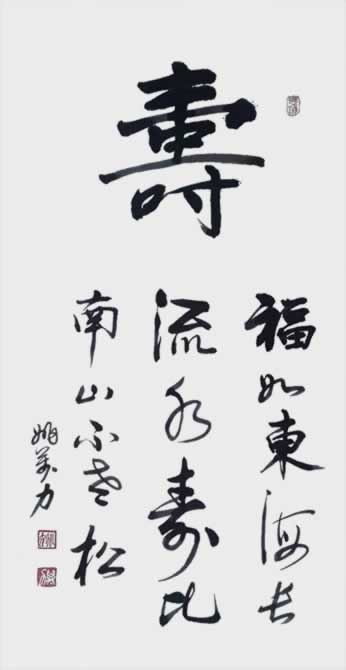 壽
福如東海長
流水壽比
南山不老松
姚萬力